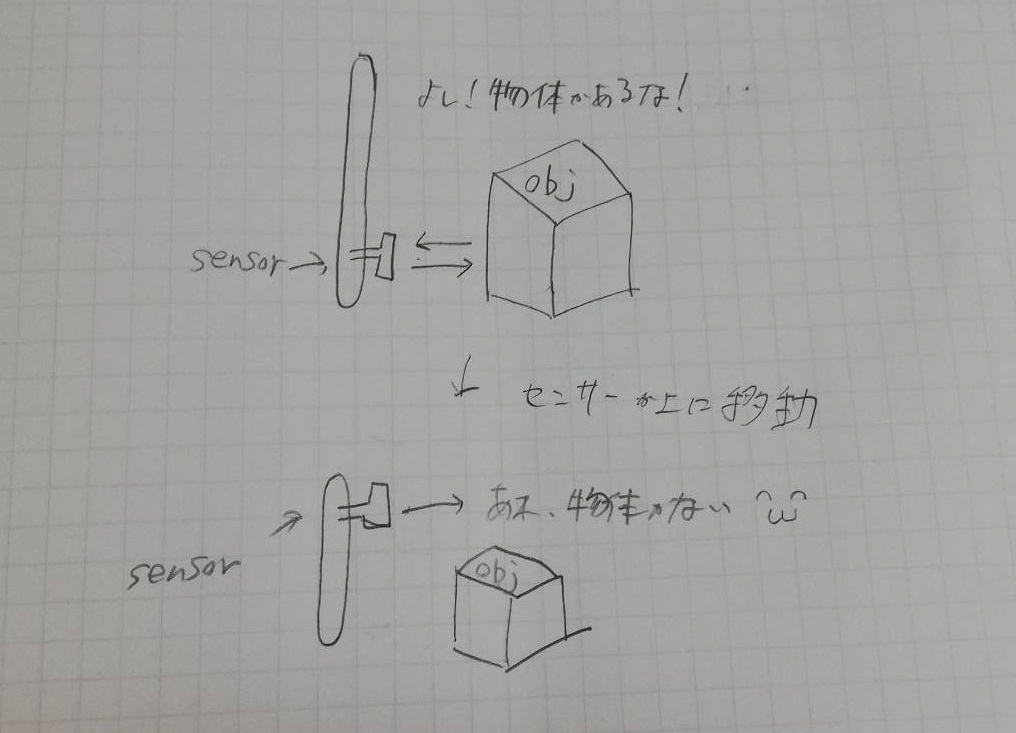 よし！物体があるな！
obj
sensor
センサーが上に移動
あれ、物体がない
obj
sensor